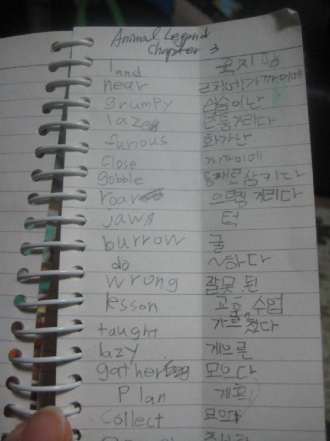 Animal Legend
Chapter 3
land
near 근처에, 가까이에
grumpy 심술이난
laze
furious 화가난
close 가까이에
gobble 통째로 삼키다
roar 으르렁 거리다
jaws 턱
burrow 굴
do ~하다
wrong 잘못 된
lesson 교훈, 수업
taught 가르쳤다
lazy 게으른
gather 모으다
Plan 계획
collect 모으다